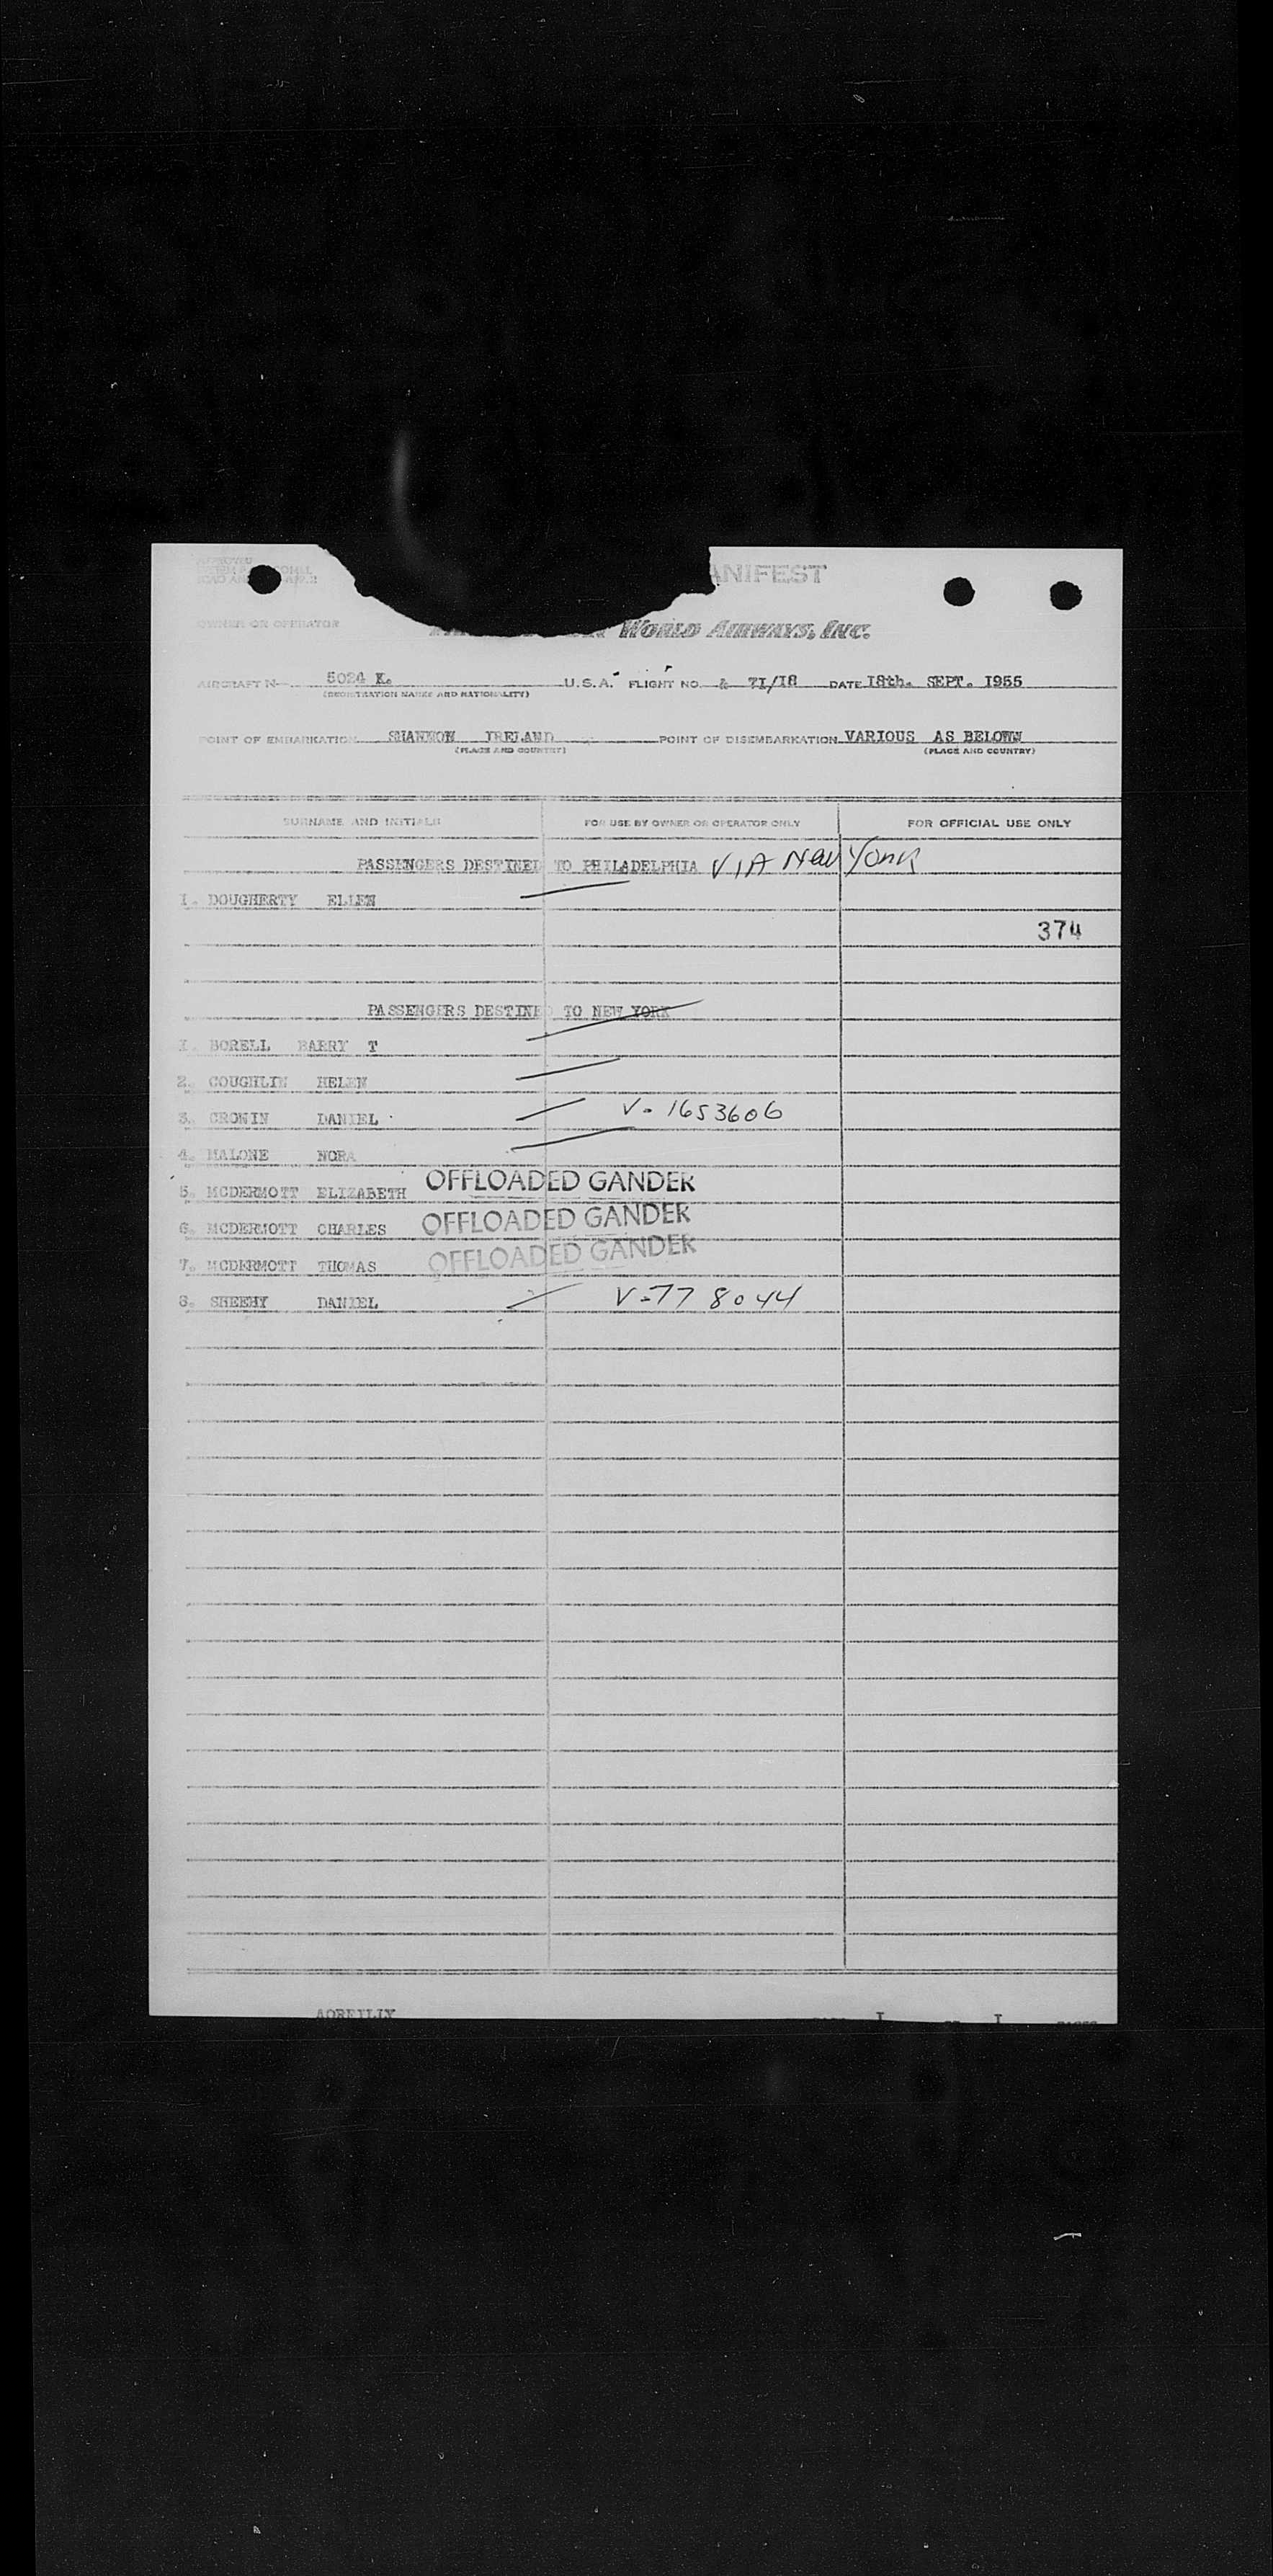 ANIFEST
OWNER OR OPERATOR WORLD AIRWAYS, INC.
AIRCRAFT N 5024 K. U.S.A. FLIGHT NO. & 71/18 DATE 18th. SEPT. 1955
(REGISTRATION MARKS AND NATIONALITY)
POINT OF EMBARKATION SHANNON IRELAND POINT OF DISEMBARKATION VARIOUS AS BELOWN
(PLACE AND COUNTRY) (PLACE AND COUNTRY)
SURNAME AND INITIALS FOR USE BY OWNER OR OPERATOR ONLY FOR OFFICIAL USE ONLY
PASSENGERS DESTINED TO PHILADELPHIA VIA New York
1. DOUGHERTY ELLEN
374
PASSENGERS DESTINED TO NEW YORK
1. BORELL BARRY T
2. COUGHLIN HELEN
3. CRONIN DANIEL V- 1653606
4. MALONE NORA
5. MCDERMOTT ELIZABETH OFFLOADED GANDER
6. MCDERMOTT CHARLES OFFLOADED GANDER
7. MCDERMOTT THOMAS OFFLOADED GANDER
8. SHEEHY DANIEL V-778044
AOREILLY I I